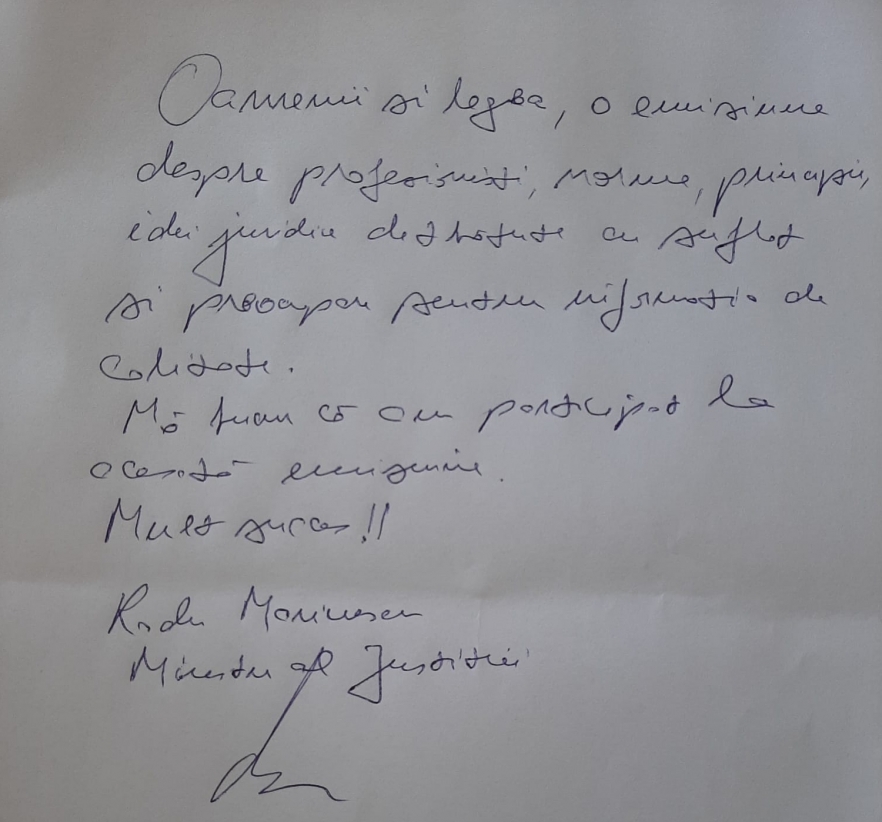 Oamenii si legea, o emisiune
despre profesionisti, norme, principii,
idei juridice dezbatute cu suflet
si preocupare pentru informatia de
calitate.
Mă bucur că am participat la
această emisiune.
Mult succes!!
Radu Marinescu
Ministru al Justitiei